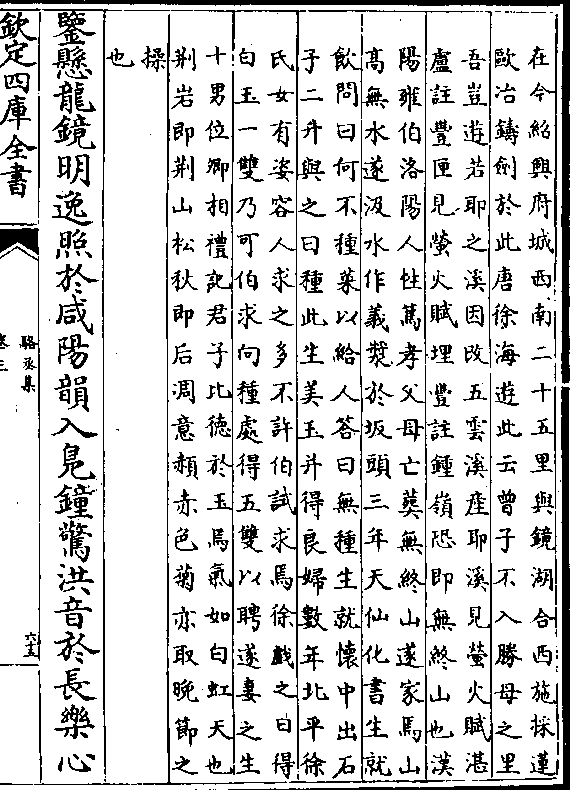 在今紹興府城西南二十五里與鏡湖合西施採蓮
歐冶鑄劍於此唐徐海遊此云曾子不入勝母之里
吾豈遊若耶之溪因改五雲溪産耶溪見螢火賦湛
盧註豐匣見螢火賦埋豐註鍾嶺恐即無終山也漢
陽雍伯洛陽人性篤孝父母亡葬無終山遂家焉山
髙無水遂汲水作義漿於坂頭三年天仙化書生就
飲問曰何不種菜以給人答曰無種生就懷中出石
子二升與之曰種此生美玉并得良婦數年北平徐
氏女有姿容人求之多不許伯試求焉徐戲之曰得
白玉一雙乃可伯求向種處得五雙以聘遂妻之生
十男位卿相禮記君子比德於玉焉氣如白虹天也
荆岩即荆山松秋即后凋意頳赤色菊亦取晚節之
操
也
鑒懸龍鏡明逸照於咸陽韻入鳬鐘驚洪音於長樂心
欽定四庫全書
駱丞集
卷三
六十五